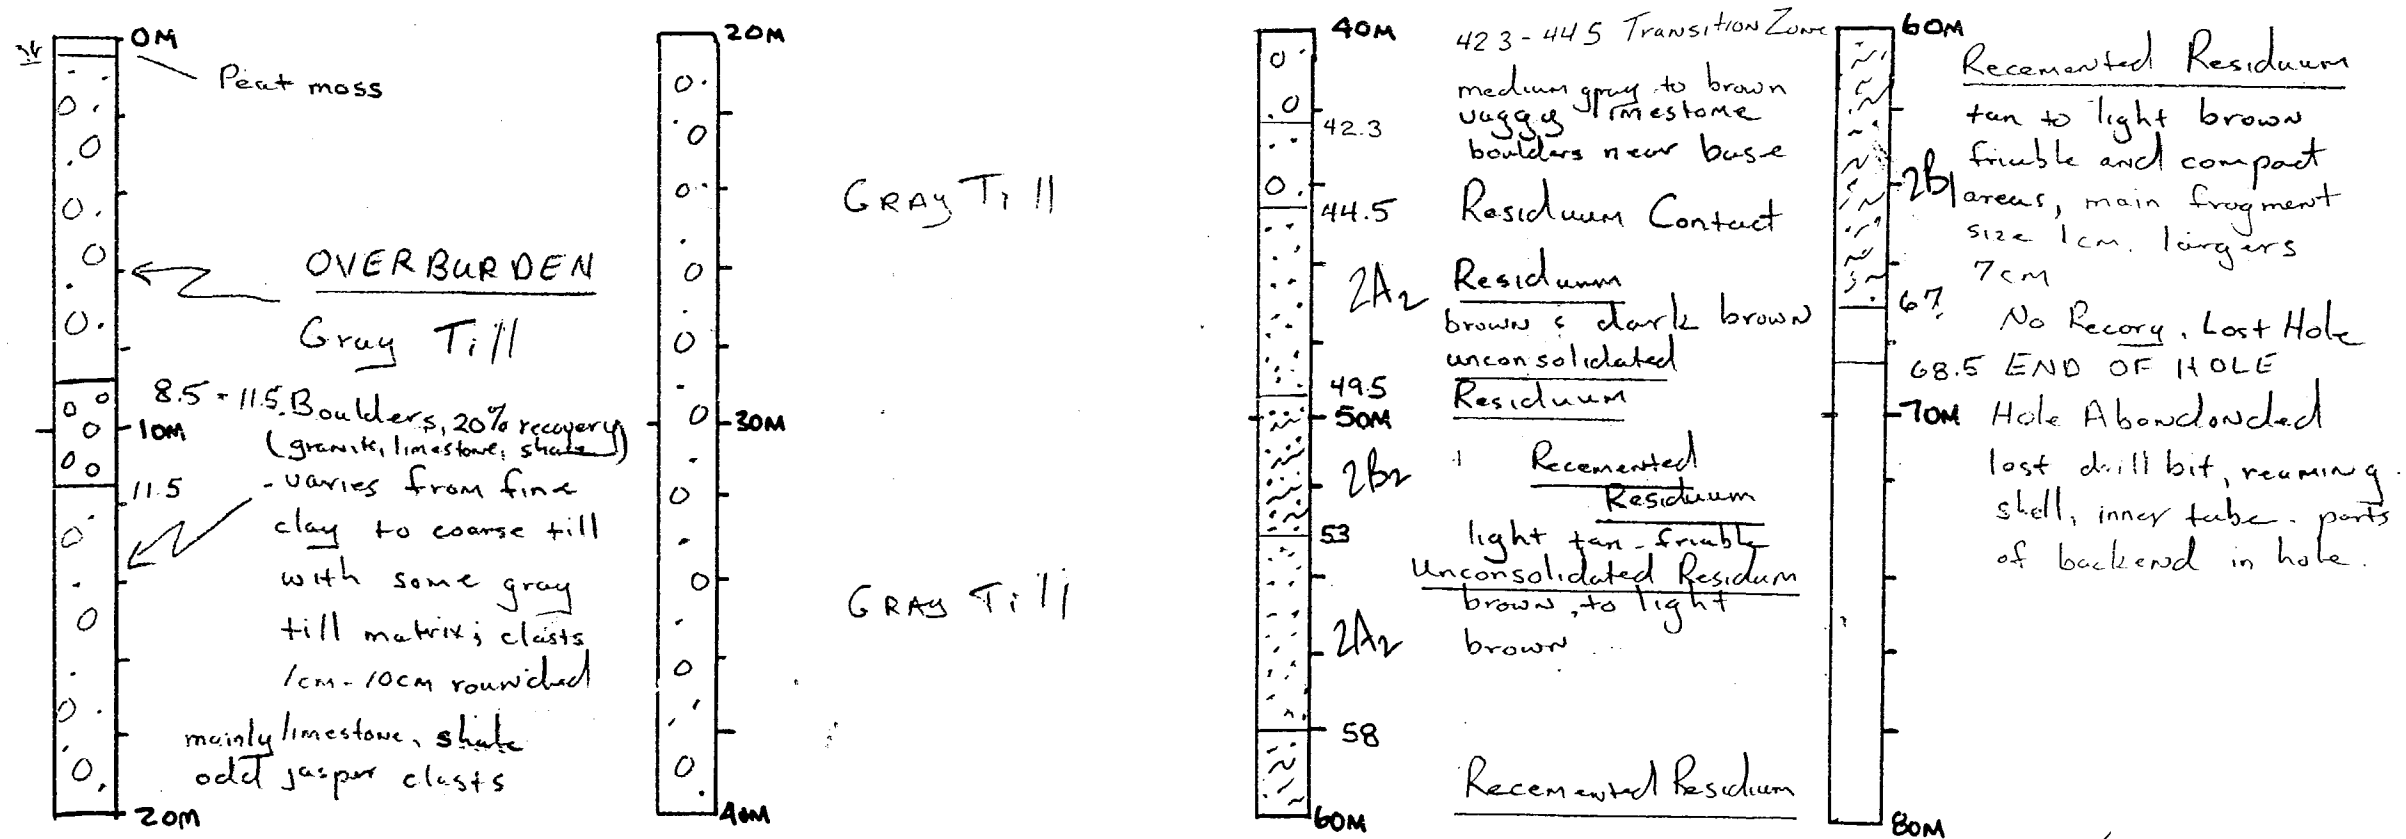 0M
Peat moss
OVERBURDEN
Gray Till
8.5 - 11.5. Boulders, 20% recovery
10M
(granite, limestone, shale)
11.5
- varies from fine
clay to coarse till
with some gray
till matrix; clasts
1cm - 10cm rounded
mainly limestone, shale
odd jasper clasts
20M
20M
GRAY Till
30M
GRAY Till
40M
40M
42.3 - 44.5 Transition Zone
medium gray to brown
vuggy limestone
42.3
boulders near base
44.5 Residuum Contact
2A2 Residuum
brown & dark brown
unconsolidated
49.5 Residuum
50M
2B2 Recemented
Residuum
53 light tan - friable
Unconsolidated Residum
brown, to light
2A2 brown
58
Recemented Residium
60M
60M
Recemented Residuum
tan to light brown
friable and compact
2B1 areas, main fragment
size 1cm. largers
7cm
67?
No Recory. Lost Hole
68.5 END OF HOLE
70M Hole Abandonded
lost drill bit, reaming
shell, inner tube. parts
of backend in hole.
80M